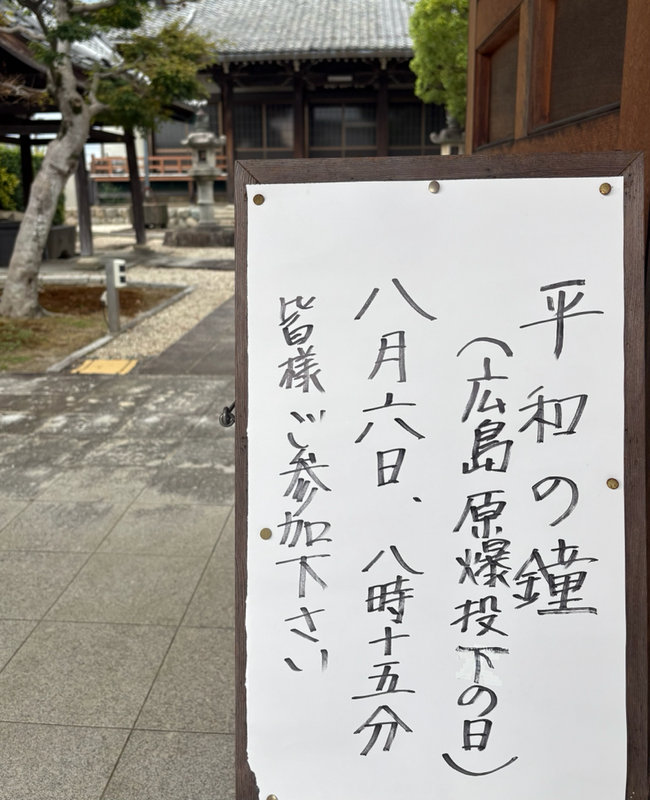 平和の鐘
（広島原爆投下の日）
八月六日、八時十五分
皆様ご参加下さい